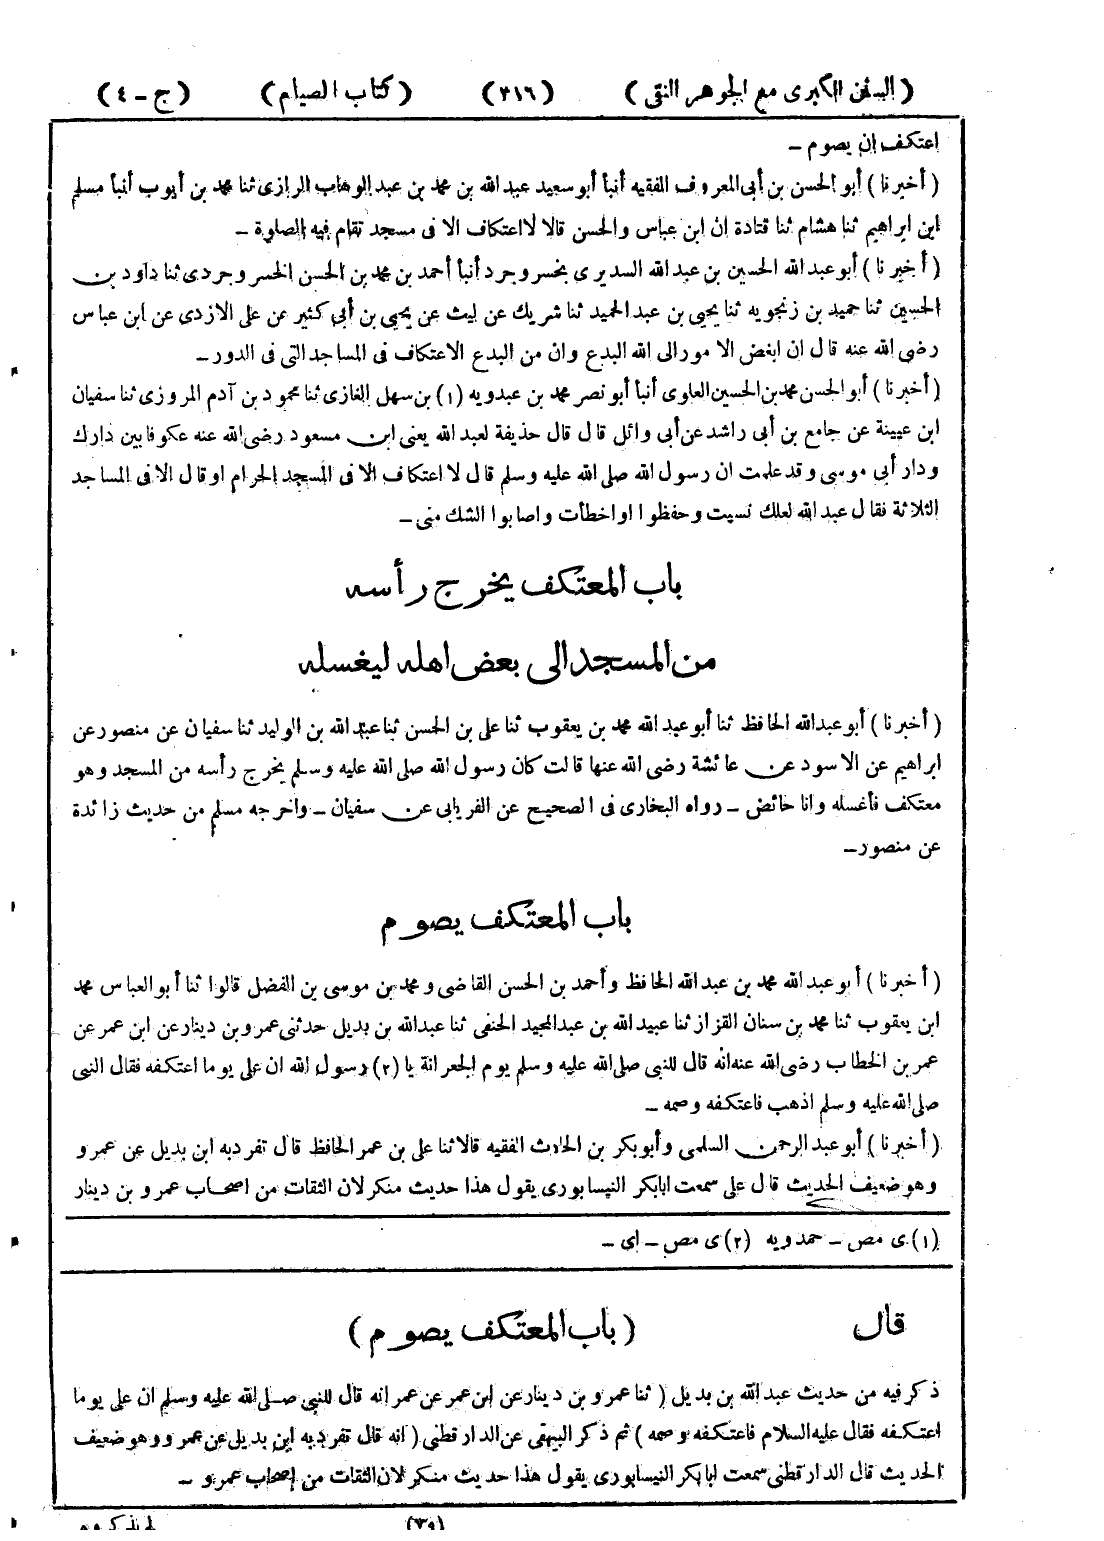 (السنن الكبرى مع الجوهر النقى) (٣١٦) (كتاب الصيام) (ج - ٤)
اعتكف ان يصوم -
(أخبرنا) أبو الحسن بن أبى المعروف الفقيه أنبأ أبو سعيد عبد الله بن محمد بن عبد الوهاب الرازى ثنا محمد بن أيوب أنبأ مسلم
ابن ابراهيم ثنا هشام ثنا قتادة ان ابن عباس والحسن قالا لا اعتكاف الا فى مسجد تقام فيه الصلوة -
(أخبرنا) أبو عبد الله الحسين بن عبد الله السديرى بخسروجرد أنبأ أحمد بن محمد بن الحسن الخسروجردى ثنا داود بن
الحسين ثنا حميد بن زنجويه ثنا يحيى بن عبد الحميد ثنا شريك عن ليث عن يحيى بن أبى كثير عن على الازدى عن ابن عباس
رضى الله عنه قال ان ابغض الامور الى الله البدع وان من البدع الاعتكاف فى المساجد التى فى الدور -
(أخبرنا) أبو الحسن محمد بن الحسين العلوى أنبأ أبو نصر محمد بن عبدويه (١) بن سهل الغازى ثنا محمود بن آدم المروزى ثنا سفيان
ابن عيينة عن جامع بن أبى راشد عن أبى وائل قال قال حذيفة لعبد الله يعنى ابن مسعود رضى الله عنه عكوفا بين دارك
ودار أبى موسى وقد علمت ان رسول الله صلى الله عليه وسلم قال لا اعتكاف الا فى المسجد الحرام او قال الا فى المساجد
الثلاثة فقال عبد الله لعلك نسيت وحفظوا او اخطأت واصابوا الشك منى -
باب المعتكف يخرج رأسه
من المسجد الى بعض اهله ليغسله
(أخبرنا) أبو عبد الله الحافظ ثنا أبو عبد الله محمد بن يعقوب ثنا على بن الحسن ثنا عبد الله بن الوليد ثنا سفيان عن منصور عن
ابراهيم عن الاسود عن عائشة رضى الله عنها قالت كان رسول الله صلى الله عليه وسلم يخرج رأسه من المسجد وهو
معتكف فأغسله وانا حائض - رواه البخارى فى الصحيح عن الفريابى عن سفيان - واخرجه مسلم من حديث زائدة
عن منصور -
باب المعتكف يصوم
(أخبرنا) أبو عبد الله محمد بن عبد الله الحافظ وأحمد بن الحسن القاضى ومحمد بن موسى بن الفضل قالوا ثنا أبو العباس محمد
ابن يعقوب ثنا محمد بن سنان القزاز ثنا عبيد الله بن عبد المجيد الحنفى ثنا عبد الله بن بديل حدثنى عمرو بن دينار عن ابن عمر عن
عمر بن الخطاب رضى الله عنه انه قال للنبى صلى الله عليه وسلم يوم الجعرانة يا (٢) رسول الله ان على يوما اعتكفه فقال النبى
صلى الله عليه وسلم اذهب فاعتكفه وصمه -
(أخبرنا) أبو عبد الرحمن السلمى وأبو بكر بن الحارث الفقيه قالا ثنا على بن عمر الحافظ قال تفرد به ابن بديل عن عمرو
وهو ضعيف الحديث قال على سمعت ابا بكر النيسابورى يقول هذا حديث منكر لان الثقات من اصحاب عمرو بن دينار
(١) ى مص - حمدويه (٢) ى مص - اى -
قال (باب المعتكف يصوم)
ذكر فيه من حديث عبد الله بن بديل (ثنا عمرو بن دينار عن ابن عمر عن عمر انه قال للنبى صلى الله عليه وسلم ان على يوما
اعتكفه فقال عليه السلام فاعتكفه وصمه) ثم ذكر البيهقى عن الدارقطنى (انه قال تفرد به ابن بديل عن عمرو وهو ضعيف
الحديث قال الدارقطنى سمعت ابا بكر النيسابورى يقول هذا حديث منكر لان الثقات من اصحاب عمرو -
(٣٩)